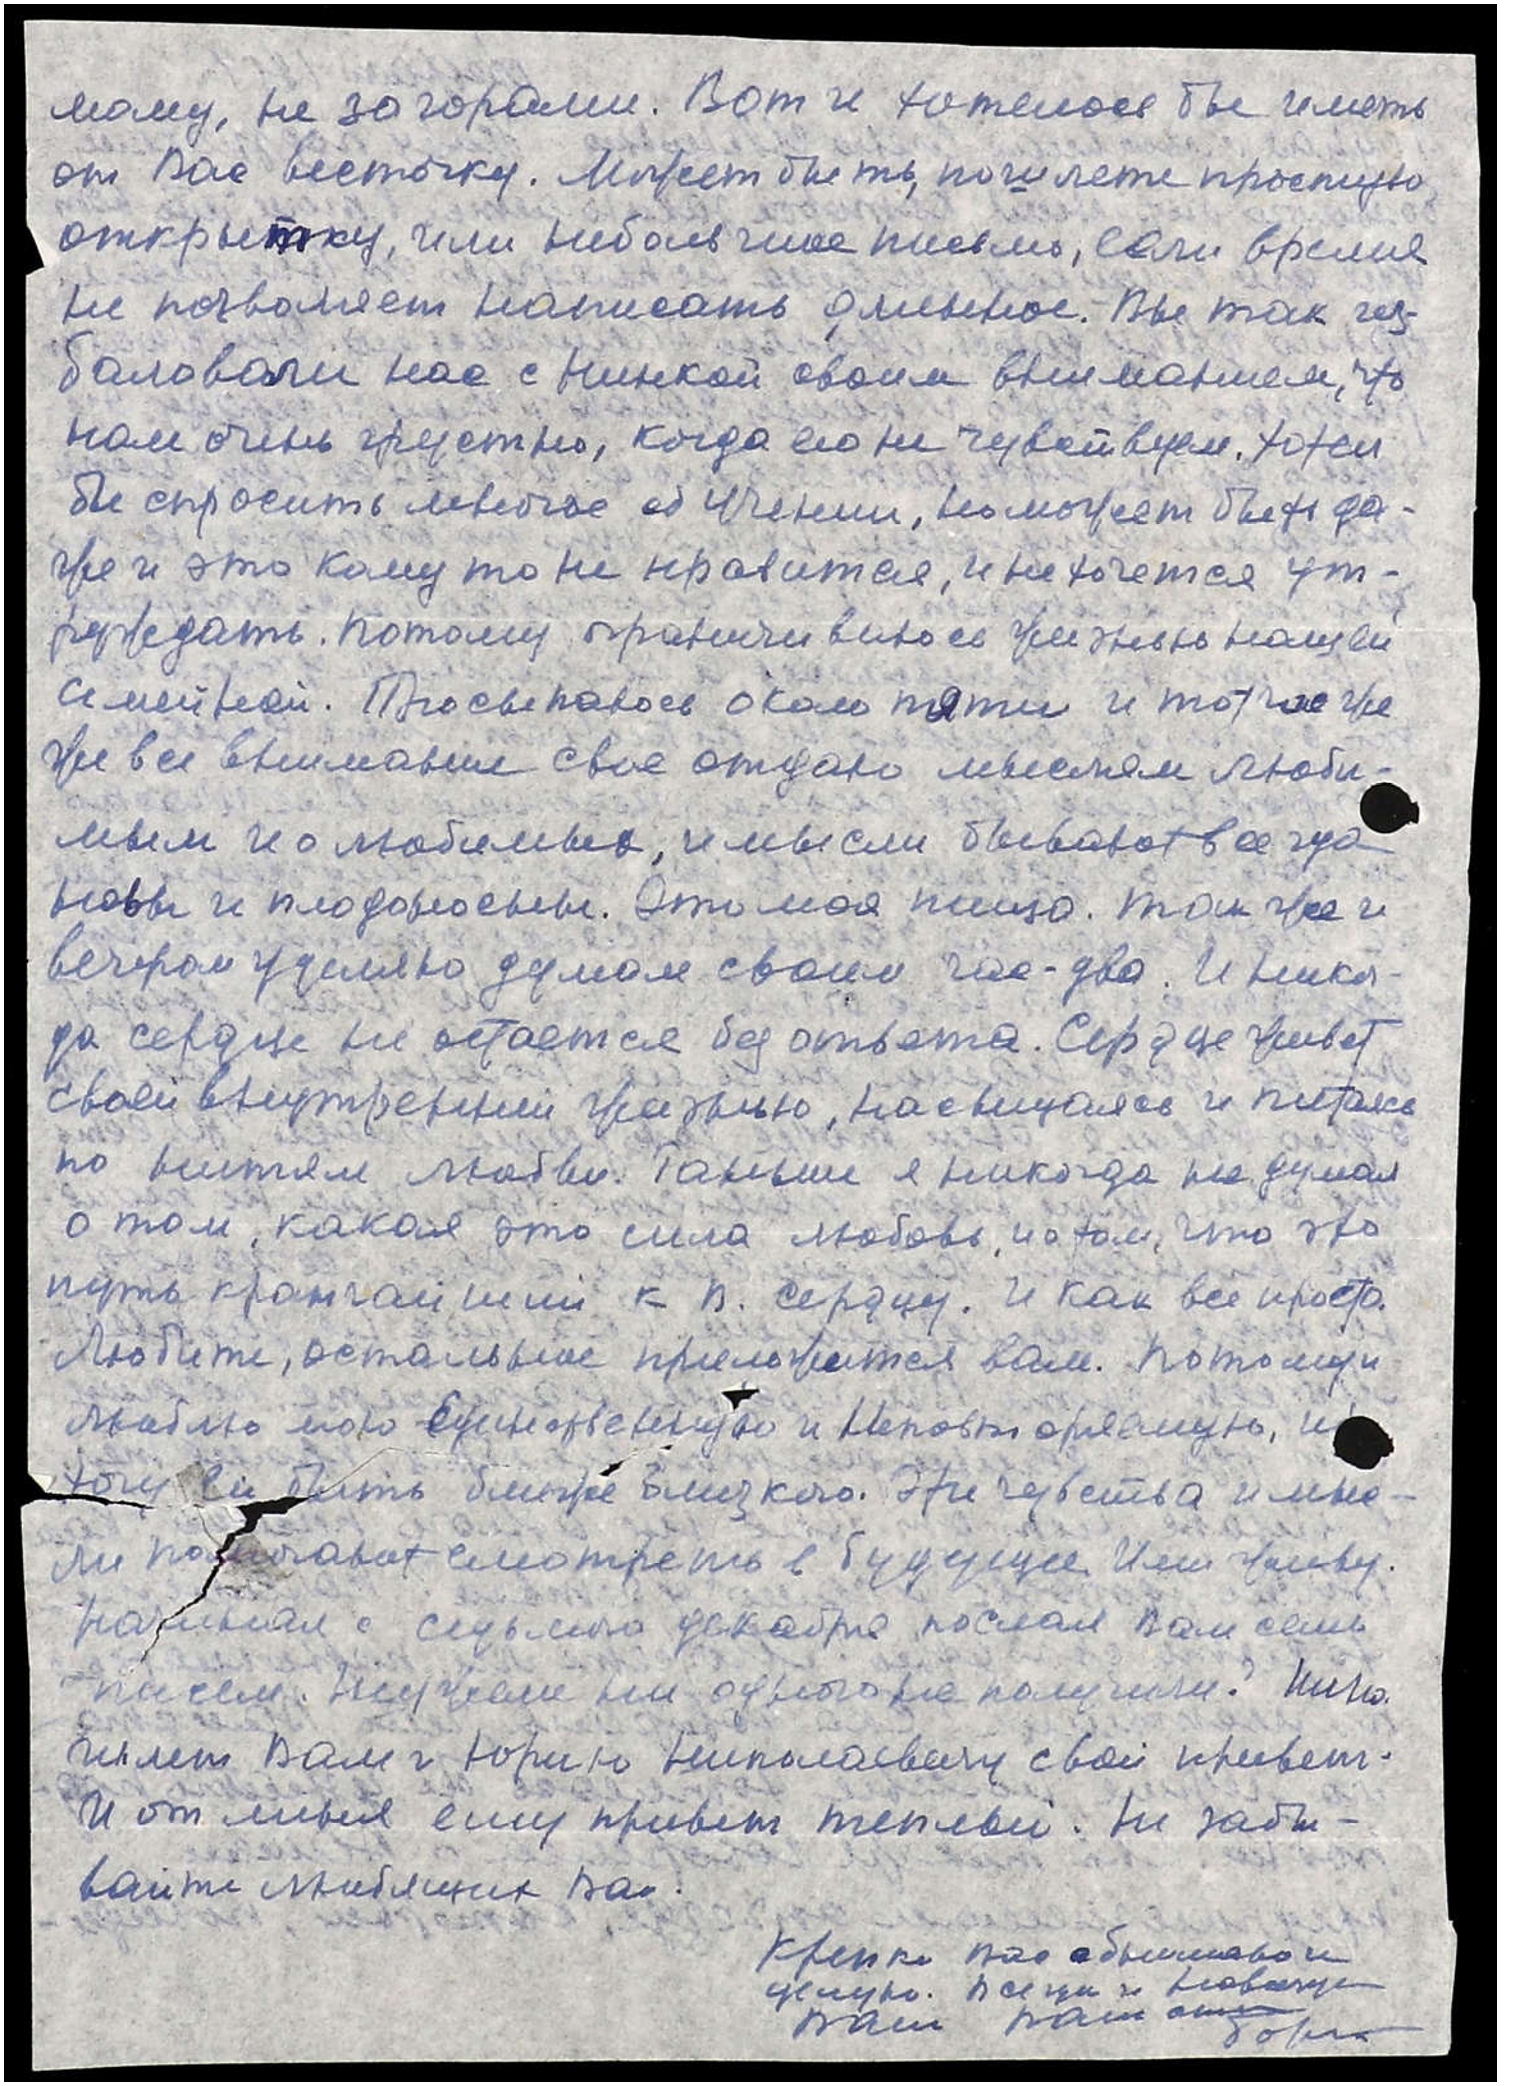 мому, не за горами. Вот и хотелось бы иметь
от Вас весточку. Может быть, пошлете простую
открытку, или небольшое письмо, если время
не позволяет написать длинное. Вы так из-
баловали нас с Нинкой своим вниманием, что
нам очень грустно, когда его не чувствуем. Хотел
бы спросить многое об Учении, но может быть да-
же и это кому то не нравится, и не хочется ут-
руждать. Потому ограничиваюсь жизнью нашей
семейной. Просыпаюсь около пяти и тотчас же
же все внимание свое отдаю мыслям люби-
мым и о любимых, и мысли бывают всегда
новы и плодоносны. Это моя пища. Так же и
вечером уделяю думам своим час-два. И никог-
да сердце не остается без ответа. Сердце живет
своей внутренней жизнью, насыщаясь и питаясь
по нитям любви. Раньше я никогда не думал
о том, какая это сила любовь, и о том, что это
путь кратчайший к В. сердцу. И как все просто.
Любите, остальное приложится вам. Потому и
люблю мою Единственную и Неповторяемую, и
хочу ей быть ближе близкого. Эти чувства и мыс-
ли помогают смотреть в будущее. Им и живу.
Начиная с седьмого декабря послал Вам семь
писем. Неужели ни одного не получили? Нина
шлет Вам и Юрию Николаевичу свой привет.
И от меня ему привет теплый. Не забы-
вайте любящих Вас.
Крепко Вас обнимаю и
целую. Всегда и навсегда
Ваш Ваш
Борис